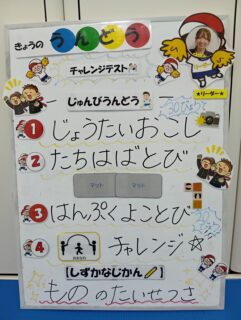 きょうの うんどう
チャレンジテスト
★リーダー★
じゅんびうんどう
30びょうで
1 じょうたいおこし
2 たちはばとび
マット マット
3 はんぷくよことび
4 チャレンジ☆
[しずかなじかん]
もののたいせつさ